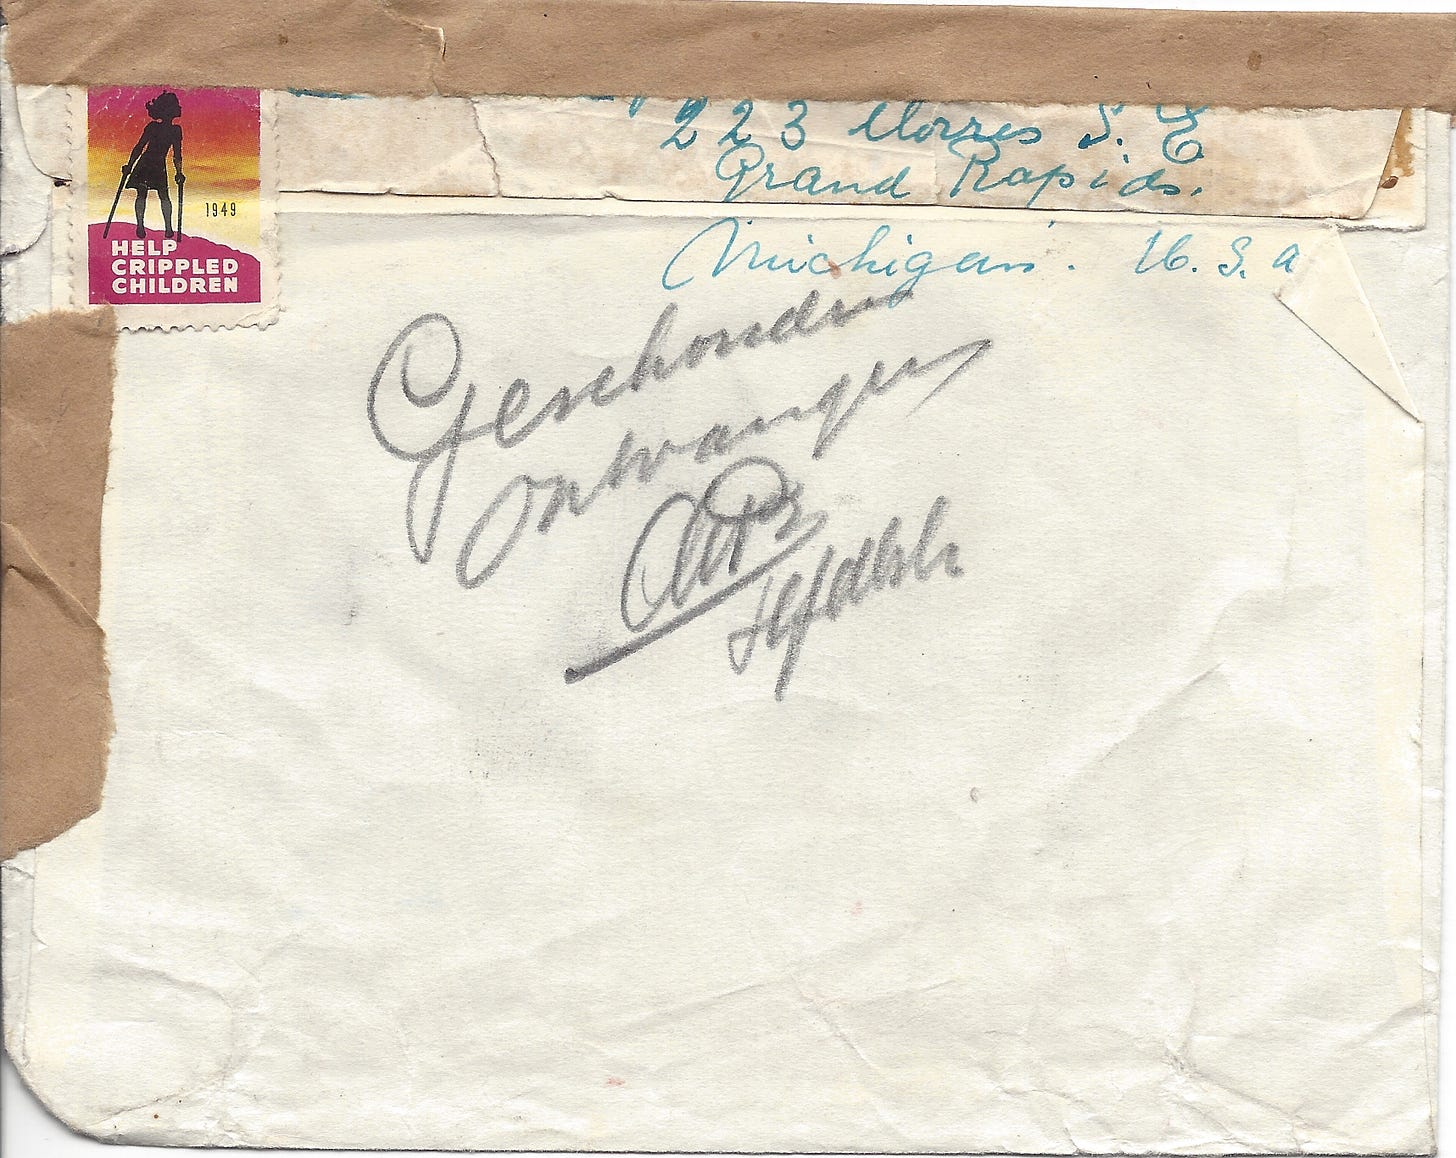 1949
HELP
CRIPPLED
CHILDREN
223 Morres S. E
Grand Rapids.
Michigan. U. S. A
Geschonden
ontvangen